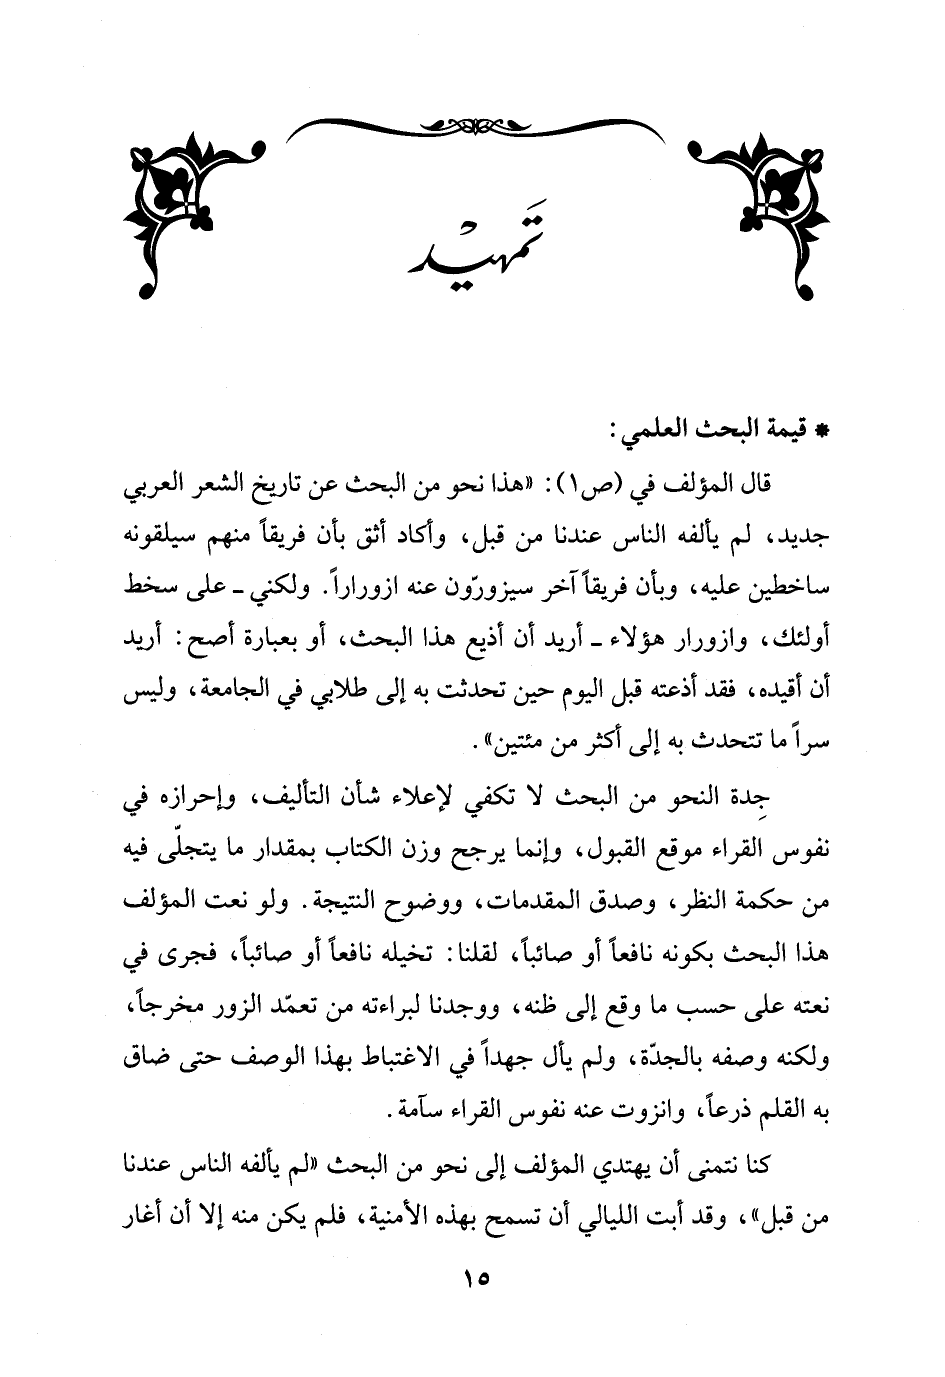 تمهيد
* قيمة البحث العلمي:
قال المؤلف في (ص١): «هذا نحو من البحث عن تاريخ الشعر العربي
جديد، لم يألفه الناس عندنا من قبل، وأكاد أثق بأن فريقاً منهم سيلقونه
ساخطين عليه، وبأن فريقاً آخر سيزورّون عنه ازوراراً. ولكني ـ على سخط
أولئك، وازورار هؤلاء ـ أريد أن أذيع هذا البحث، أو بعبارة أصح: أريد
أن أقيده، فقد أذعته قبل اليوم حين تحدثت به إلى طلابي في الجامعة، وليس
سراً ما تتحدث به إلى أكثر من مئتين».
جِدة النحو من البحث لا تكفي لإعلاء شأن التأليف، وإحرازه في
نفوس القراء موقع القبول، وإنما يرجح وزن الكتاب بمقدار ما يتجلّى فيه
من حكمة النظر، وصدق المقدمات، ووضوح النتيجة. ولو نعت المؤلف
هذا البحث بكونه نافعاً أو صائباً، لقلنا: تخيله نافعاً أو صائباً، فجرى في
نعته على حسب ما وقع إلى ظنه، ووجدنا لبراءته من تعمّد الزور مخرجاً،
ولكنه وصفه بالجدّة، ولم يأل جهداً في الاغتباط بهذا الوصف حتى ضاق
به القلم ذرعاً، وانزوت عنه نفوس القراء سآمة.
كنا نتمنى أن يهتدي المؤلف إلى نحو من البحث «لم يألفه الناس عندنا
من قبل»، وقد أبت الليالي أن تسمح بهذه الأمنية، فلم يكن منه إلا أن أغار
١٥